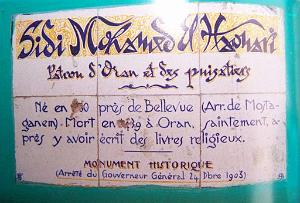 Sidi Mohamed El Haouari
Patron d'Oran et des puisatiers
Né en près de Bellevue (Arr. de Mosta-
ganem). Mort en à Oran, saintement, a-
près y avoir écrit des livres religieux.
MONUMENT HISTORIQUE
(Arrêté du Gouverneur Général 24 Dbre 1903)